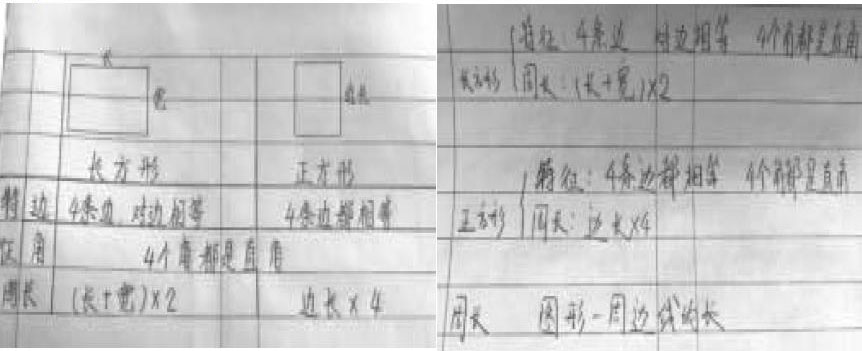 长
宽
边长
长方形 正方形
特 边 4条边 对边相等 4条边都相等
征 角 4个角都是直角
周长 (长+宽)×2 边长×4
特征: 4条边 对边相等 4个角都是直角
长方形
周长: (长+宽)×2
特征: 4条边都相等 4个角都是直角
正方形
周长: 边长×4
周长 图形一周边线的长